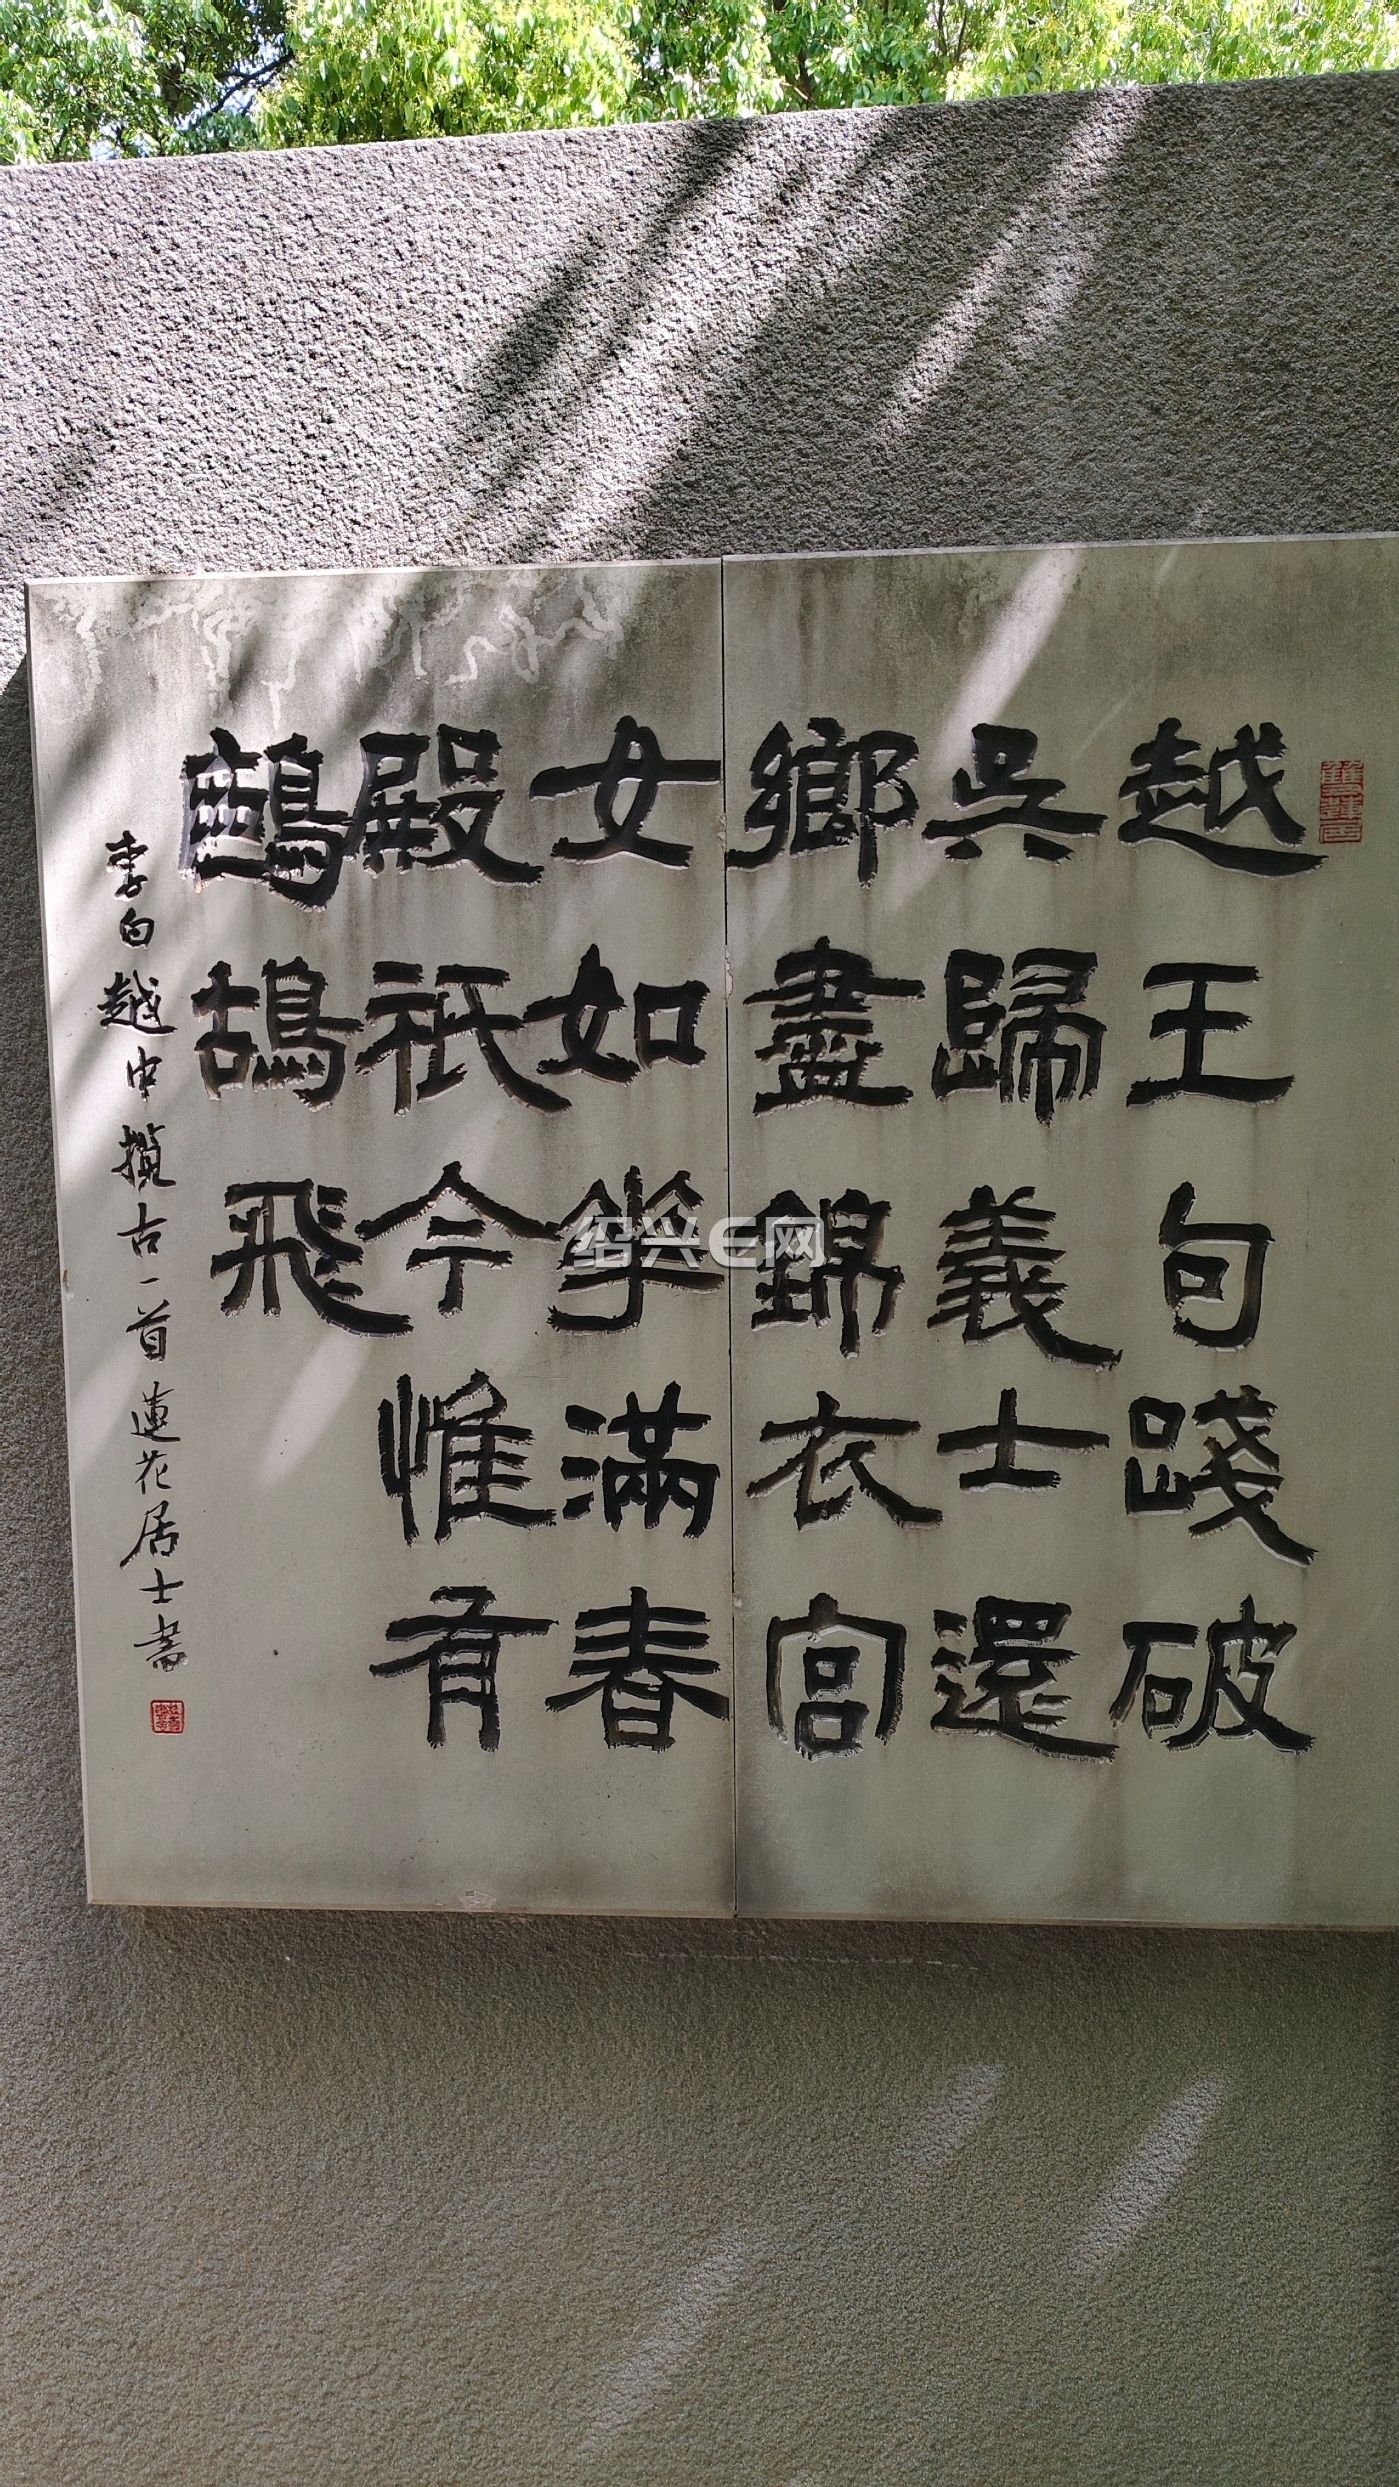 越王句踐破
吳歸義士還
鄉盡錦衣宮
女如華滿春
殿祇今惟有
鷓鴣飛
李白越中攬古一首蓮花居士書
绍兴E网